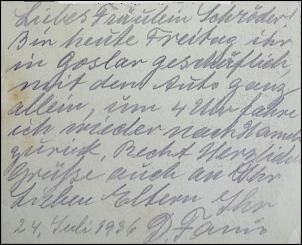 Liebes Fräulein Schröder!
Bin heute Freitag ihr
in Goslar geschäflich
mit dem Auto ganz
allein, um 4 Uhr fahre
ich wieder nach
zurück, Recht Herzlich
Grüße auch an Ihr
Lieben Eltern Ihr
24. Juli 1936 D.